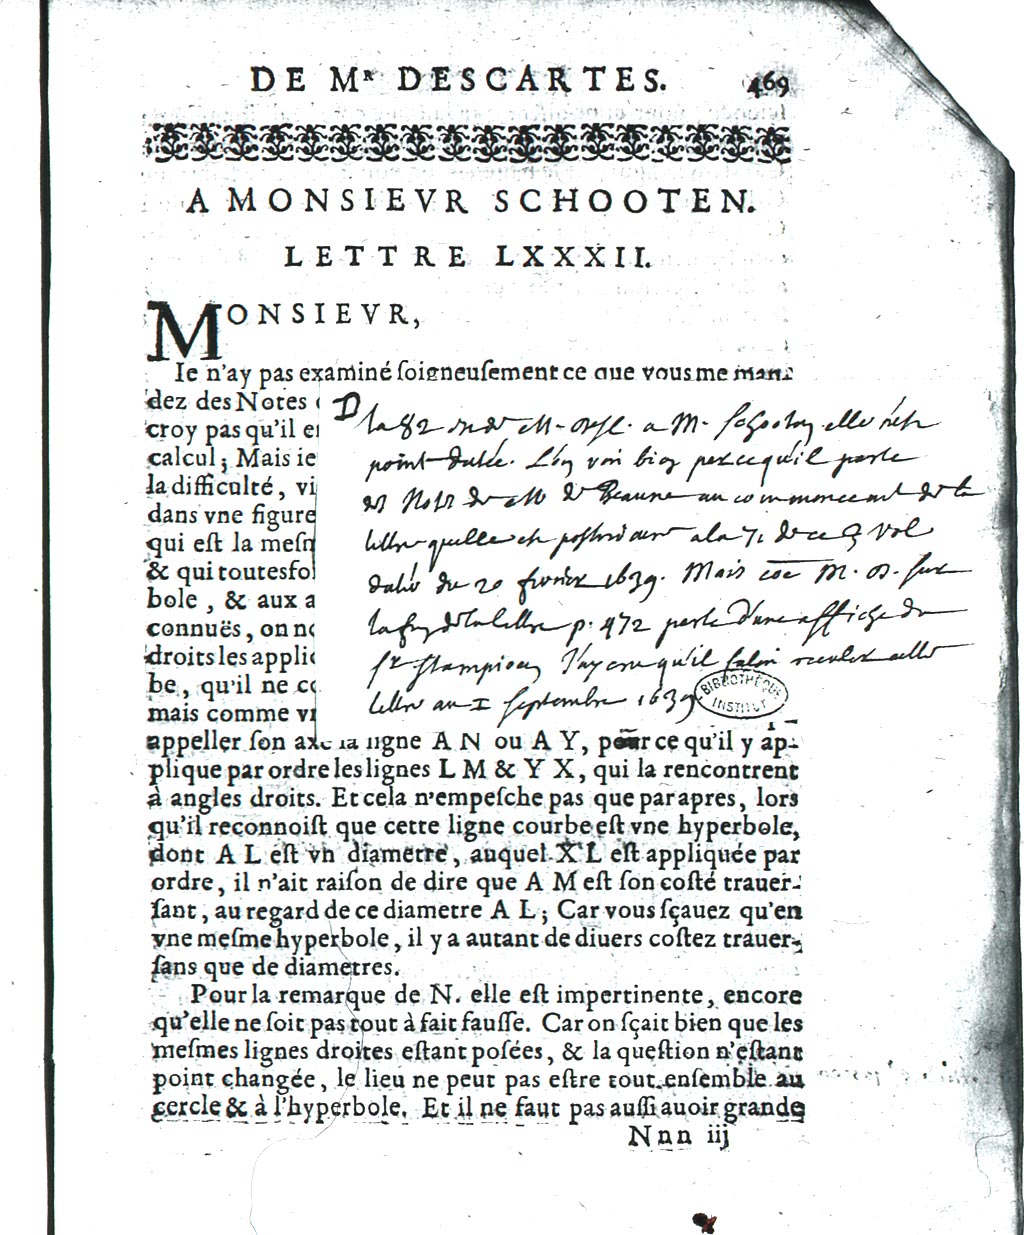 DE Mʀ DESCARTES. 469
A MONSIEVR SCHOOTEN.
LETTRE LXXXII.
MONSIEVR,
Ie n'ay pas examiné ſoigneuſement ce que vous me man-
dez des Notes
croy pas qu'il e
calcul; Mais ie
la difficulté, vi
dans vne figure
qui eſt la meſm
& qui toutesfo
bole, & aux a
connuës, on no
droits les applic
be, qu'il ne co
mais comme vn
D
la 82 de M. Desc. a M. Schooten elle n'est
point datée. L'on voit bien parce qu'il parle
des Notes de M de Beaune au commencement de la
lettre quelle est posterieure a la 71 de ce 3 vol
datée du 20 fevrier 1639. Mais M. D. sur
la fin de la lettre p. 472 parle d'une affiche du
Sr Stampioen, J'ay cru qu'il faloit reculer cette
lettre au I Septembre 1639
BIBLIOTHÈQUE
INSTITUT
appeller ſon axe la ligne A N ou A Y, pour ce qu'il y ap-
plique par ordre les lignes L M & Y X, qui la rencontrent
à angles droits. Et cela n'empeſche pas que par apres, lors
qu'il reconnoiſt que cette ligne courbe eſt vne hyperbole,
dont A L eſt vn diametre, auquel X L eſt appliquée par
ordre, il n'ait raiſon de dire que A M eſt ſon coſté trauer-
ſant, au regard de ce diametre A L; Car vous ſçauez qu'en
vne meſme hyperbole, il y a autant de diuers coſtez trauer-
ſans que de diametres.
Pour la remarque de N. elle eſt impertinente, encore
qu'elle ne ſoit pas tout à fait fauſſe. Car on ſçait bien que les
meſmes lignes droites eſtant poſées, & la queſtion n'eſtant
point changée, le lieu ne peut pas eſtre tout enſemble au
cercle & à l'hyperbole. Et il ne faut pas auſſi auoir grande
Nnn iij